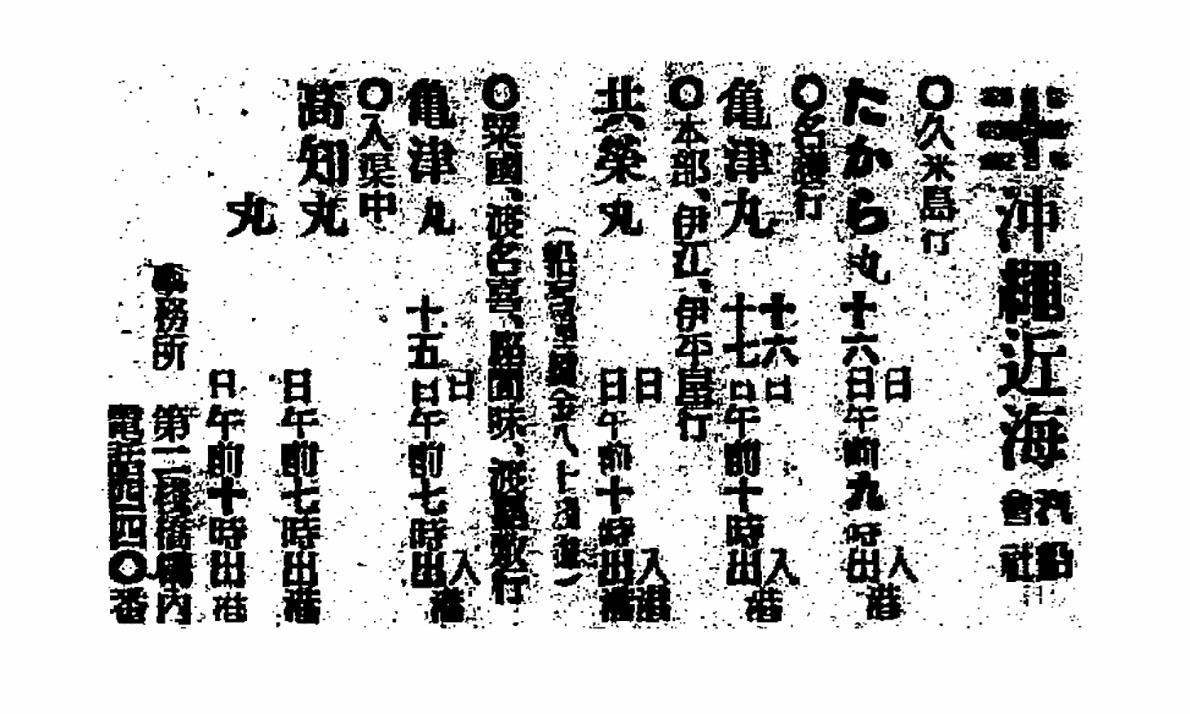 沖縄近海汽船會社
〇久米島行
たから丸 十六日午前九時出港 日入港
〇名護行
亀津丸 十六日入港 十七日午前十時出港
〇本部、伊江、伊平屋行
共榮丸 日入港 日午前十時出港
〇粟國、渡名喜、座間味、渡嘉敷行
亀津丸 日入港 十五日午前七時出港
〇入渠中
高知丸 日午前七時出港
丸 日午前十時出港
事務所 第二桟橋構内
電話四四〇番